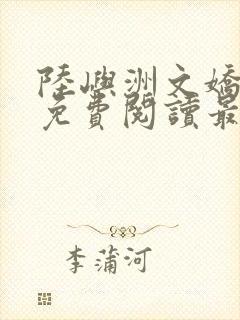 陸嶼洲文嬌
免費閱讀最
李蒲河